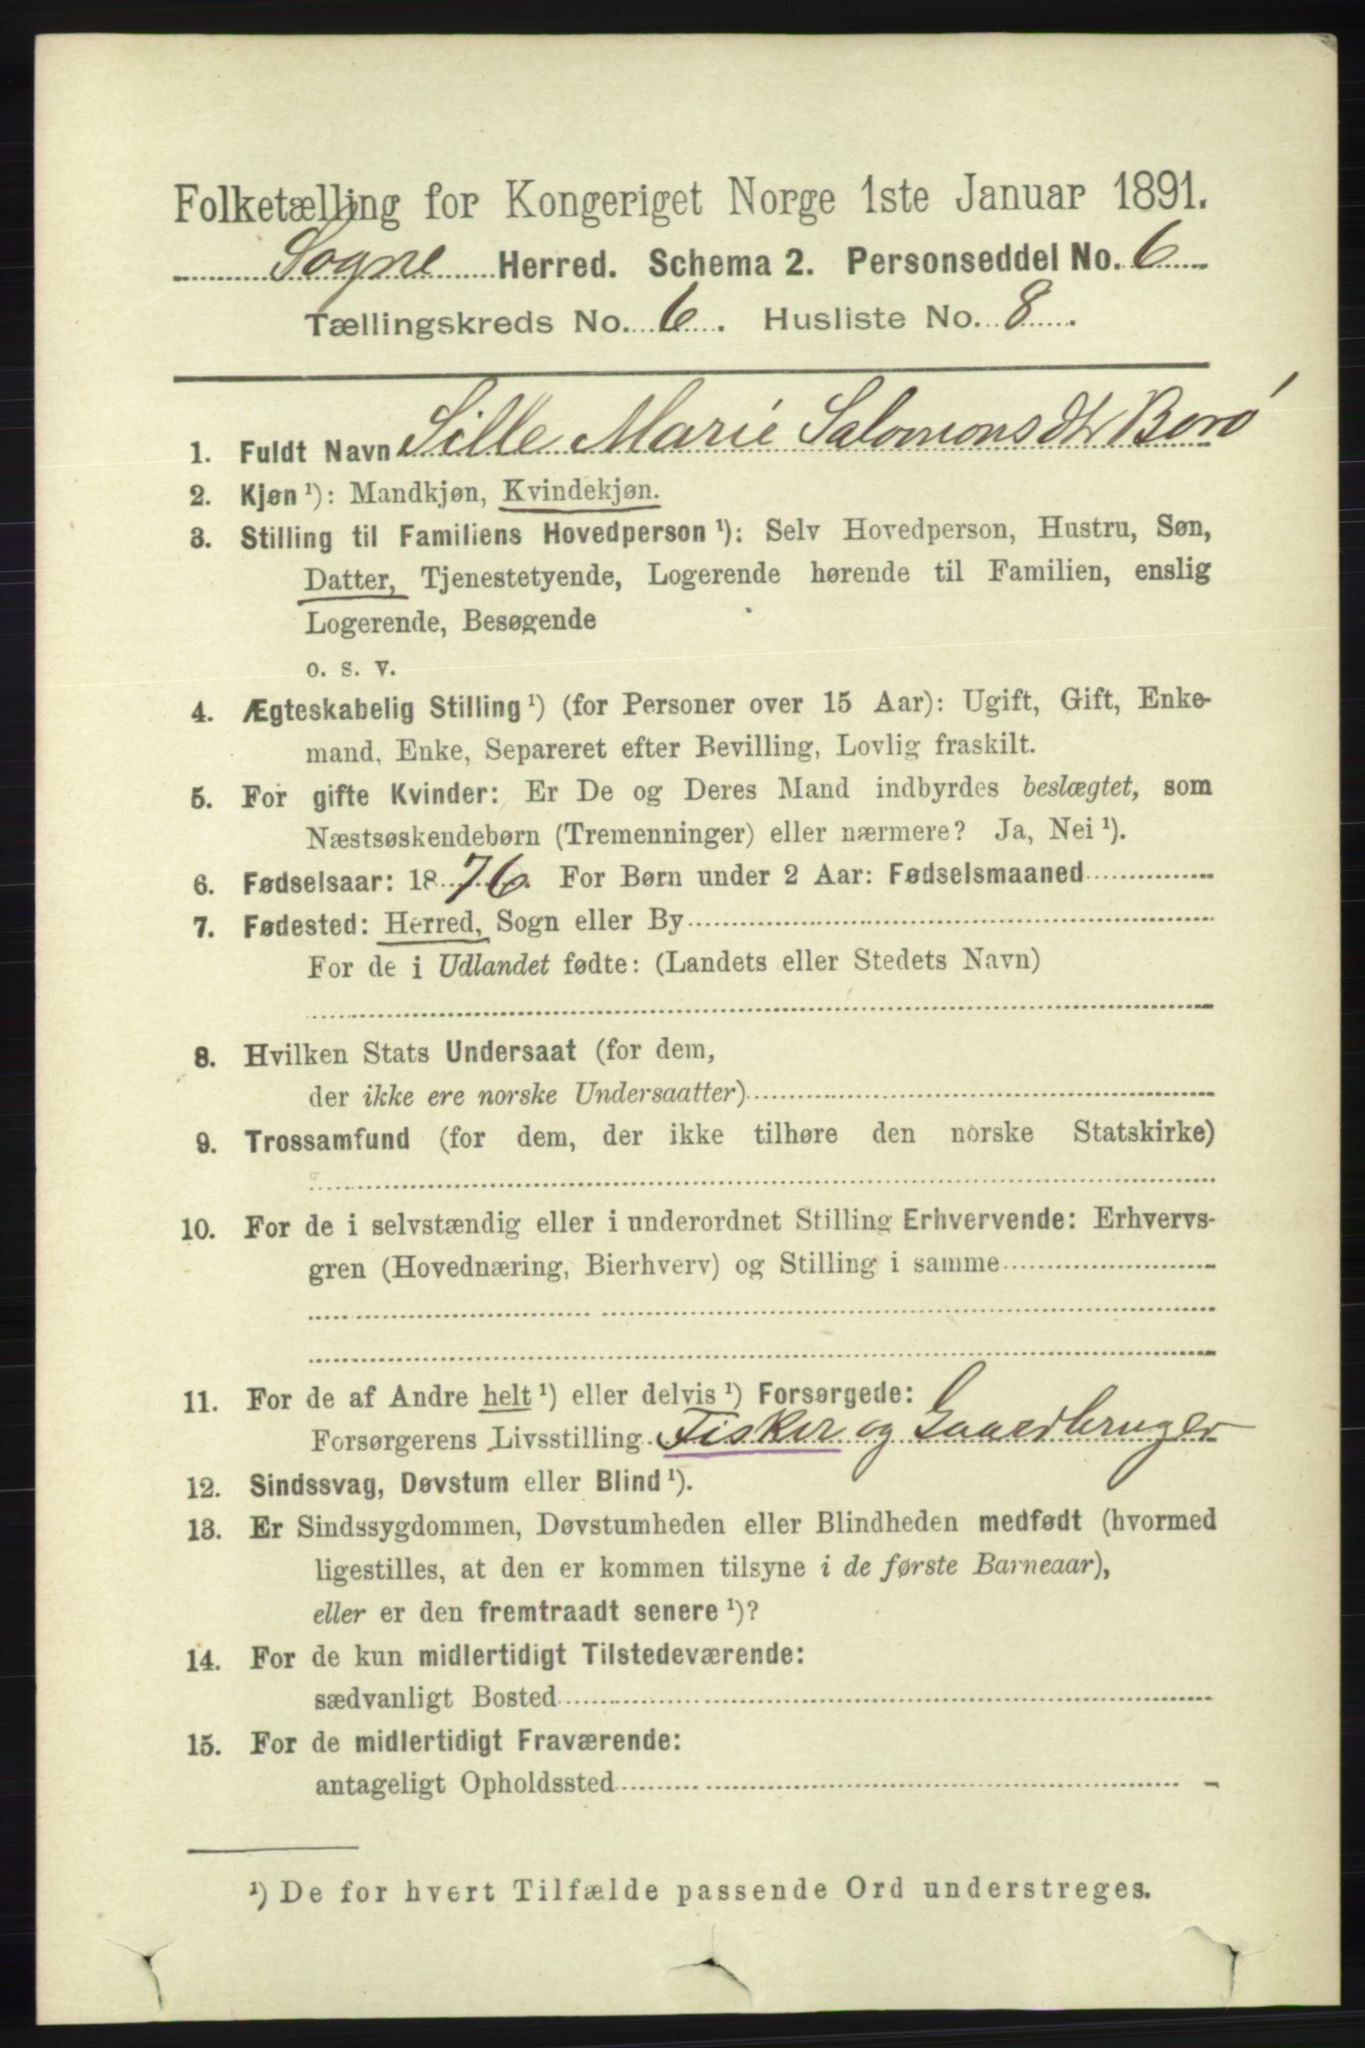 Folketælling for Kongeriget Norge 1ste Januar 1891.
Sogne Herred. Schema 2. Personseddel No. 6
Tællingskreds No. 6. Husliste No. 8.
1. Fuldt Navn Sille Marie Salomonsdtr Borø
2. Kjøn ¹): Mandkjøn, Kvindekjøn.
3. Stilling til Familiens Hovedperson ¹): Selv Hovedperson, Hustru, Søn,
Datter, Tjenestetyende, Logerende hørende til Familien, enslig
Logerende, Besøgende
o. s. v.
4. Ægteskabelig Stilling ¹) (for Personer over 15 Aar): Ugift, Gift, Enke-
mand, Enke, Separeret efter Bevilling, Lovlig fraskilt.
5. For gifte Kvinder: Er De og Deres Mand indbyrdes beslægtet, som
Næstsøskendebørn (Tremenninger) eller nærmere? Ja, Nei ¹).
6. Fødselsaar: 1876. For Børn under 2 Aar: Fødselsmaaned
7. Fødested: Herred, Sogn eller By
For de i Udlandet fødte: (Landets eller Stedets Navn)
8. Hvilken Stats Undersaat (for dem,
der ikke ere norske Undersaatter)
9. Trossamfund (for dem, der ikke tilhøre den norske Statskirke)
10. For de i selvstændig eller i underordnet Stilling Erhvervende: Erhvervs-
gren (Hovednæring, Bierhverv) og Stilling i samme
11. For de af Andre helt ¹) eller delvis ¹) Forsørgede:
Forsørgerens Livsstilling Fisker og Gaardbruger
12. Sindssvag, Døvstum eller Blind ¹).
13. Er Sindssygdommen, Døvstumheden eller Blindheden medfødt (hvormed
ligestilles, at den er kommen tilsyne i de første Barneaar),
eller er den fremtraadt senere ¹)?
14. For de kun midlertidigt Tilstedeværende:
sædvanligt Bosted
15. For de midlertidigt Fraværende:
antageligt Opholdssted
¹) De for hvert Tilfælde passende Ord understreges.